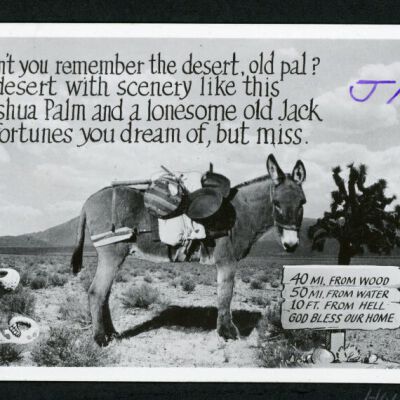 n't you remember the desert, old pal?
desert with scenery like this
shua Palm and a lonesome old Jack
fortunes you dream of, but miss.
40 MI. FROM WOOD
50 MI. FROM WATER
10 FT. FROM HELL
GOD BLESS OUR HOME